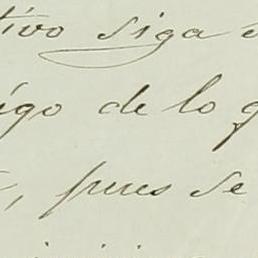 tivo siga
igo de lo q
, pues se